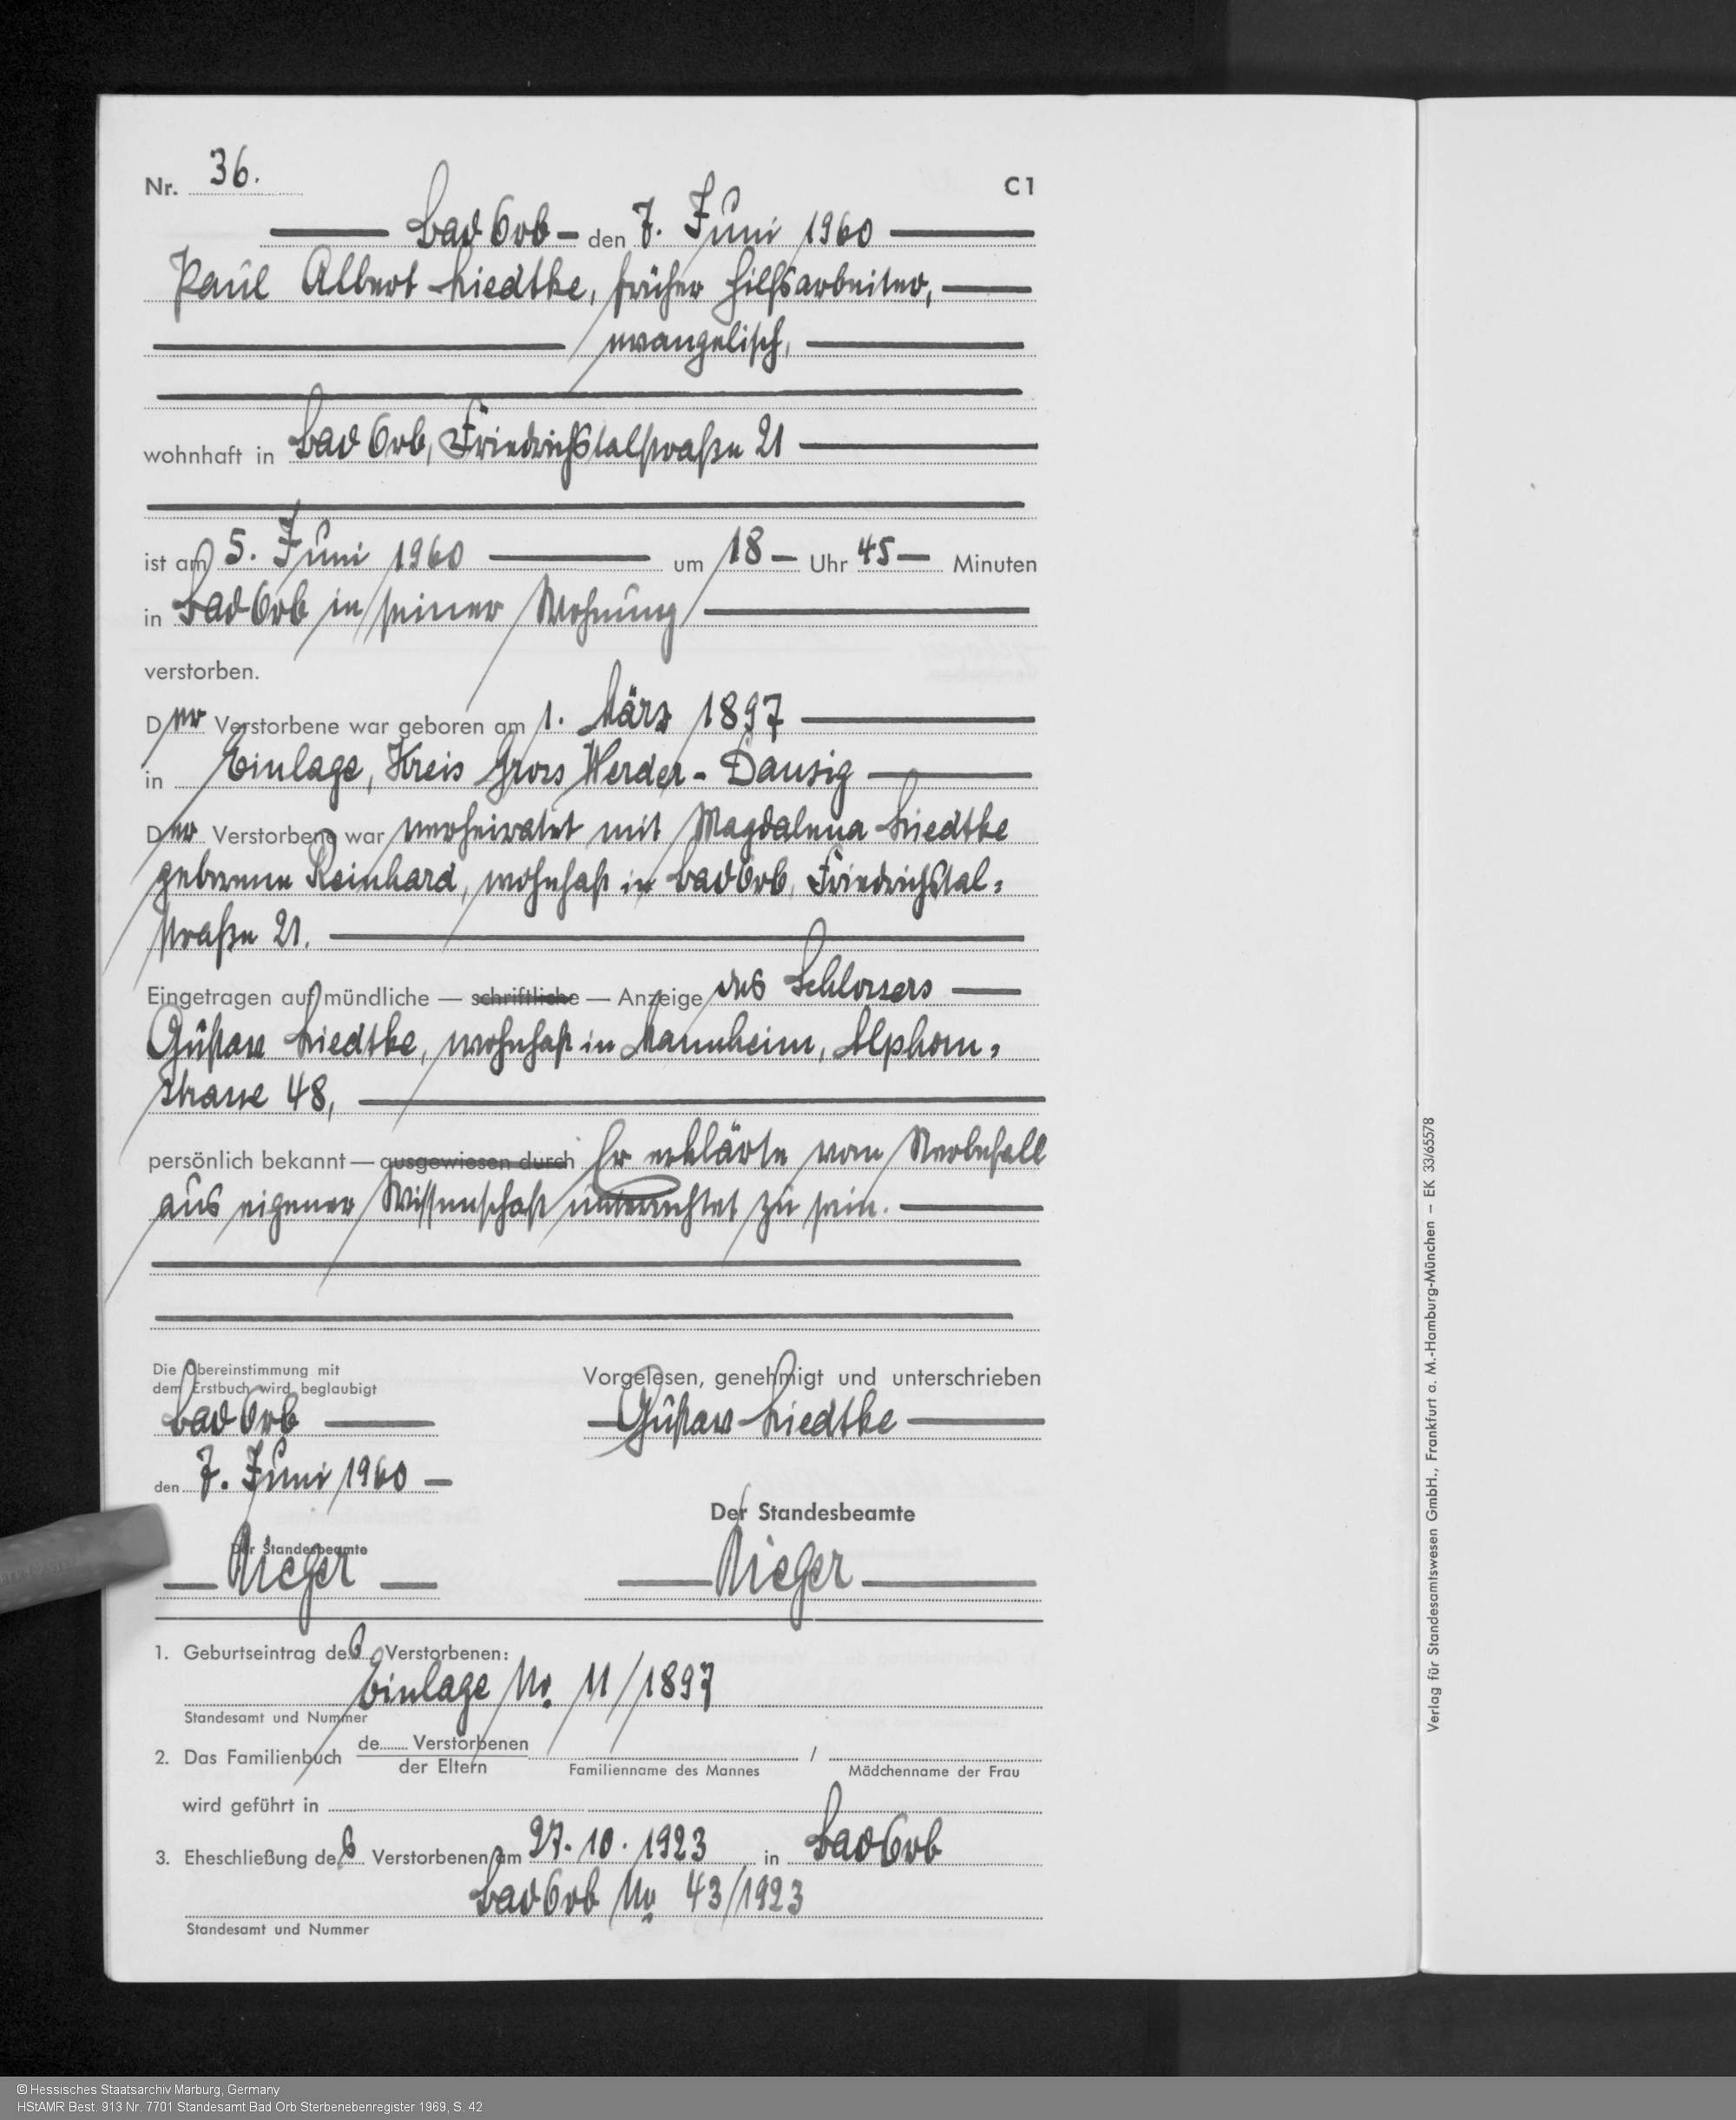 Nr. 36. C1
Bad Orb – den 7. Juni 1960
Paul Albert Liedtke, früher Hilfsarbeiter,
evangelisch,
wohnhaft in Bad Orb, Friedrichstalstraße 21
ist am 5. Juni 1960 um 18 – Uhr 45 – Minuten
in Bad Orb in seiner Wohnung
verstorben.
Der Verstorbene war geboren am 1. März 1897
in Einlage, Kreis Gross Werder - Danzig
Der Verstorbene war verheiratet mit Magdalena Liedtke
geborene Reinhard, wohnhaft in Bad Orb, Friedrichstal=
straße 21.
Eingetragen auf mündliche — schriftliche — Anzeige des Schlossers
Gustav Liedtke, wohnhaft in Mannheim, Alphorn=
strasse 48,
persönlich bekannt — ausgewiesen durch Er erklärte vom Sterbefall
aus eigener Wissenschaft unterrichtet zu sein.
Die Übereinstimmung mit
dem Erstbuch wird beglaubigt
Vorgelesen, genehmigt und unterschrieben
Bad Orb
Gustav Liedtke
den 7. Juni 1960 –
Der Standesbeamte
Der Standesbeamte
Rieger
Rieger
1. Geburtseintrag des Verstorbenen:
Einlage No. 11/1897
Standesamt und Nummer
2. Das Familienbuch de...... Verstorbenen
der Eltern
/
Familienname des Mannes Mädchenname der Frau
wird geführt in
3. Eheschließung des Verstorbenen am 27. 10. 1923 in Bad Orb
Bad Orb No 43/1923
Standesamt und Nummer
Verlag für Standesamtswesen GmbH., Frankfurt a. M.-Hamburg-München – EK 33/65578
© Hessisches Staatsarchiv Marburg, Germany
HStAMR Best. 913 Nr. 7701 Standesamt Bad Orb Sterbenebenregister 1969, S. 42